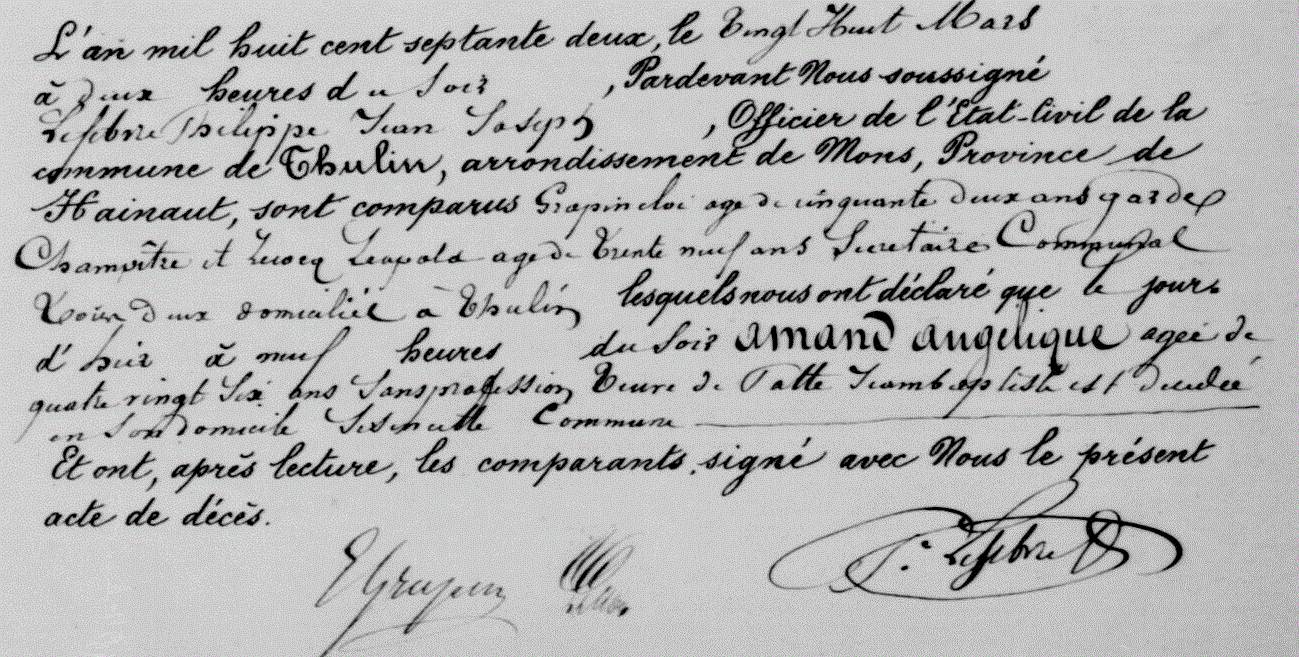 L'an mil huit cent septante deux, le Vingt Huit Mars
à deux heures du Soir , Pardevant Nous soussigné
Lefebvre Philippe Jean Joseph , Officier de l'Etat-Civil de la
commune de Thulin, arrondissement de Mons, Province de
Hainaut, sont comparus Grapin eloi age de cinquante deux ans garde
Champêtre et Lecocq Leopold age de Trente neuf ans Secretaire Communal
Tous deux domiciliés à Thulin lesquels nous ont déclaré que le jour
d'hier à neuf heures du Soir Amand Angelique ageé de
quatre vingt Six ans Sans profession Veuve de Patte Jean baptiste est decedeé
en Son domicile Sis en cette Commune
Et ont, après lecture, les comparants signé avec Nous le présent
acte de décès.
E Grapin P. Lefebvre